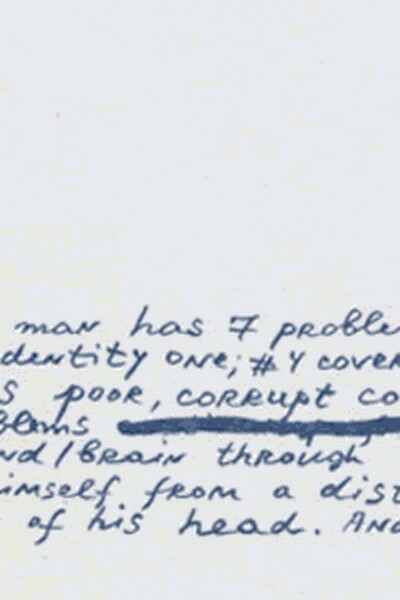 man has 7 proble
dentity one; #4 cover
s poor, corrupt co
blems
nd/brain through
imself from a dist
of his head. And